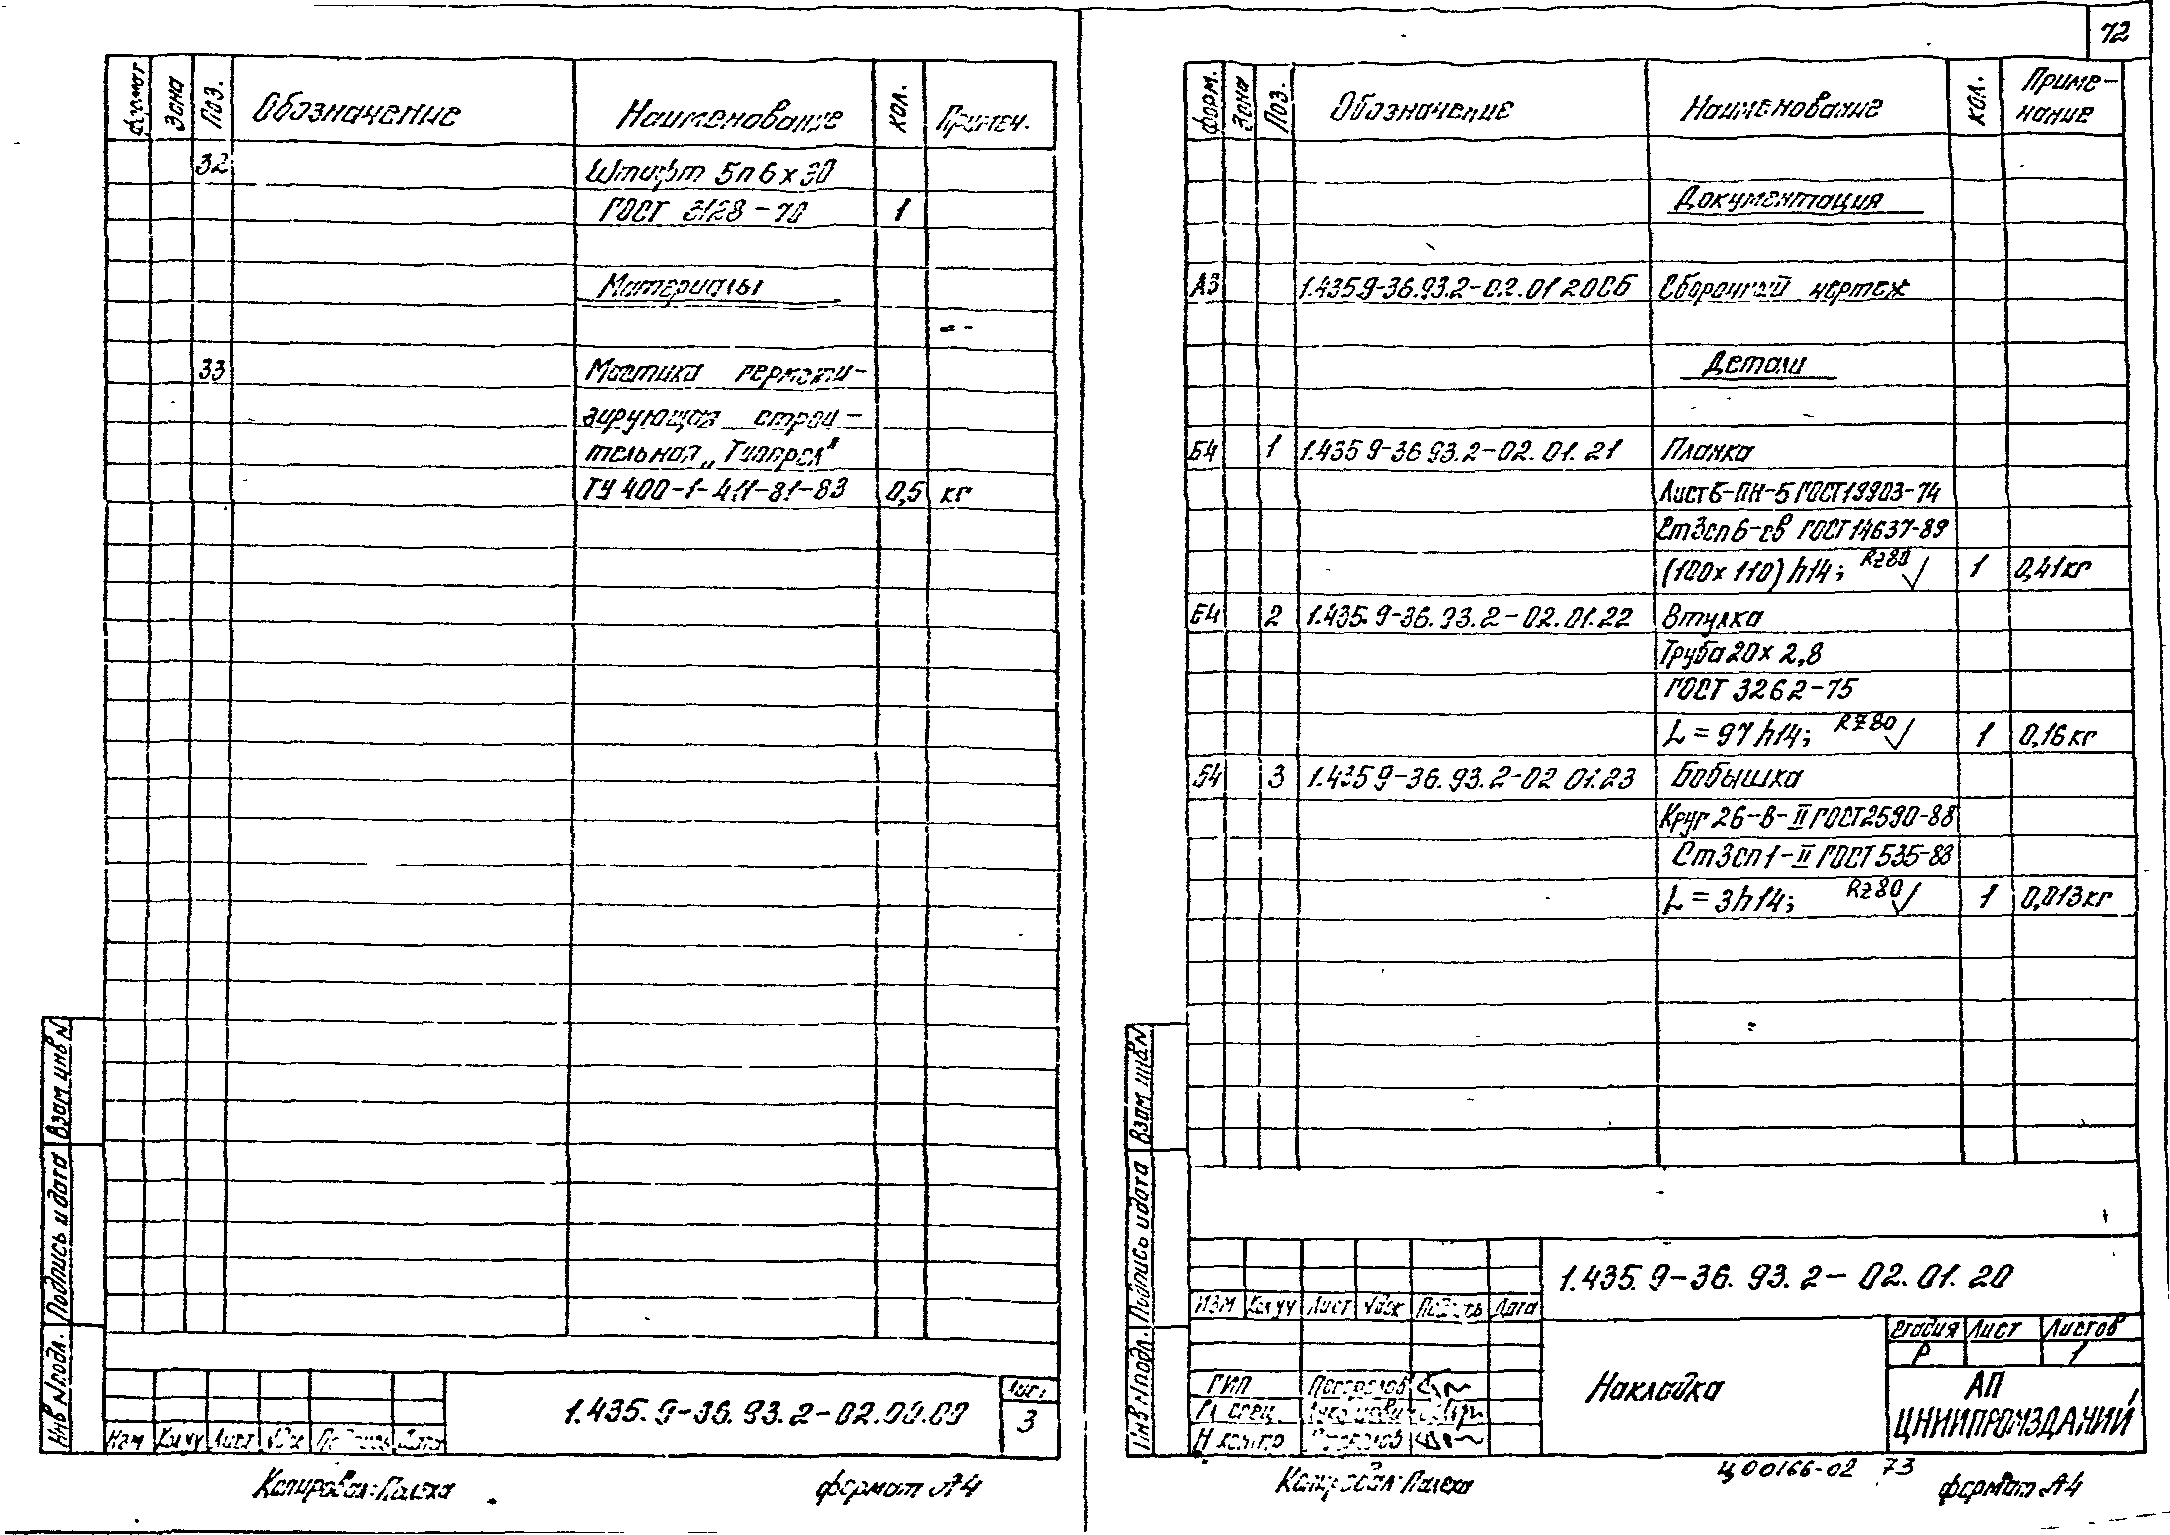 72
Формат Зона Поз. Обозначение Наименование Кол. Примеч.
32 Штифт 5п6х30
ГОСТ 3128-70 1
Материалы
33 Мастика гермети-
зирующая строи-
тельная „Тиопрол"
ТУ 400-1-411-81-83 0,5 кг
Взам инв N
Подпись и дата
Инв N подл.
Изм Кол уч Лист Nдок Подпись Дата
1.435.9-36.93.2-02.00.00
Лист
3
Копировал: Палеха
формат А4
Форм. Зона Поз. Обозначение Наименование Кол. Приме-
чание
Документация
А3 1.435 9-36.93.2-02.01 20СБ Сборочный чертеж
Детали
Б4 1 1.435 9-36 93.2-02.01.21 Планка
Лист Б-ПН-5 ГОСТ 19903-74
Ст3сп6-св ГОСТ 14637-89
(100х110)h14; Rz80 1 0,41кг
Б4 2 1.435.9-36.93.2-02.01.22 Втулка
Труба 20х2,8
ГОСТ 3262-75
L=97h14; Rz80 1 0,16кг
Б4 3 1.435 9-36.93.2-02 01.23 Бобышка
Круг 26-В-II ГОСТ 2590-88
Ст3сп1-II ГОСТ 535-88
L=3h14; Rz80 1 0,013кг
Взам инв N
Подпись и дата
Инв N подл.
1.435.9-36.93.2-02.01.20
Изм Кол уч Лист Nдок Подпись Дата
Накладка
Стадия Лист Листов
Р 1
ГИП
Гл спец
Н контр
АП
ЦНИИПРОМЗДАНИЙ
Копировал: Палеха
Ц00166-02 73
формат А4